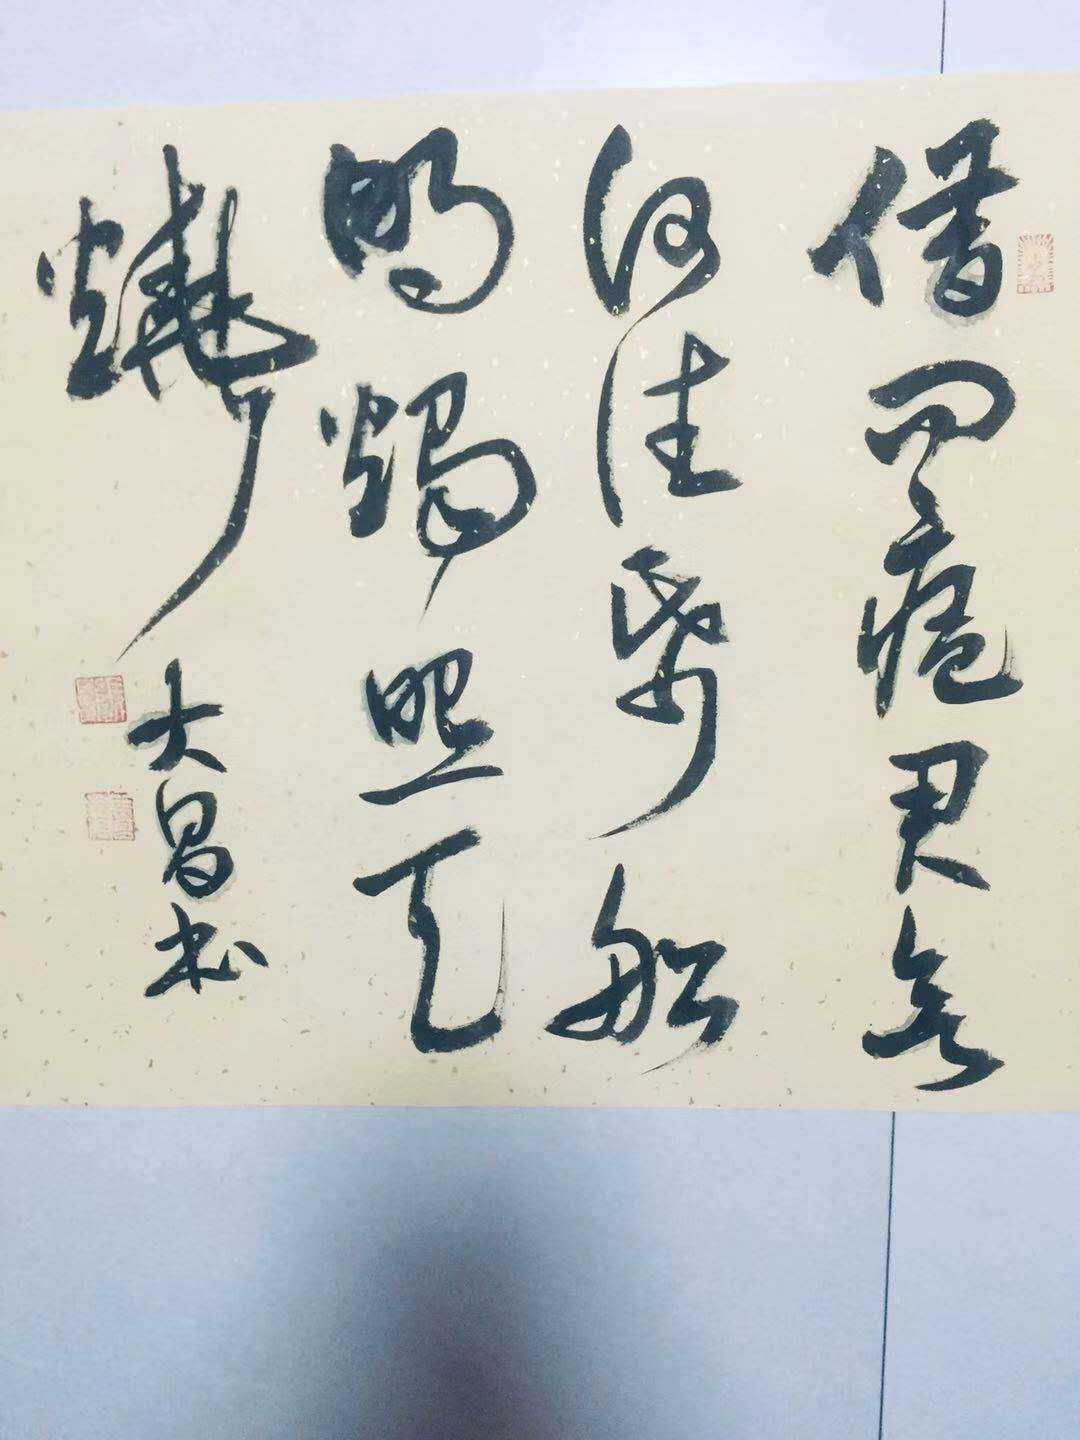 借问瘟君欲
何往帋船
明燭照天
燒
大昌书